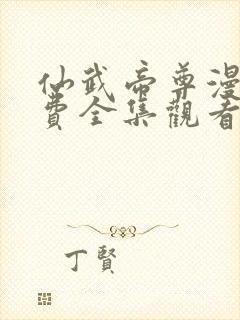 仙武帝尊漫
費全集觀看
丁賢